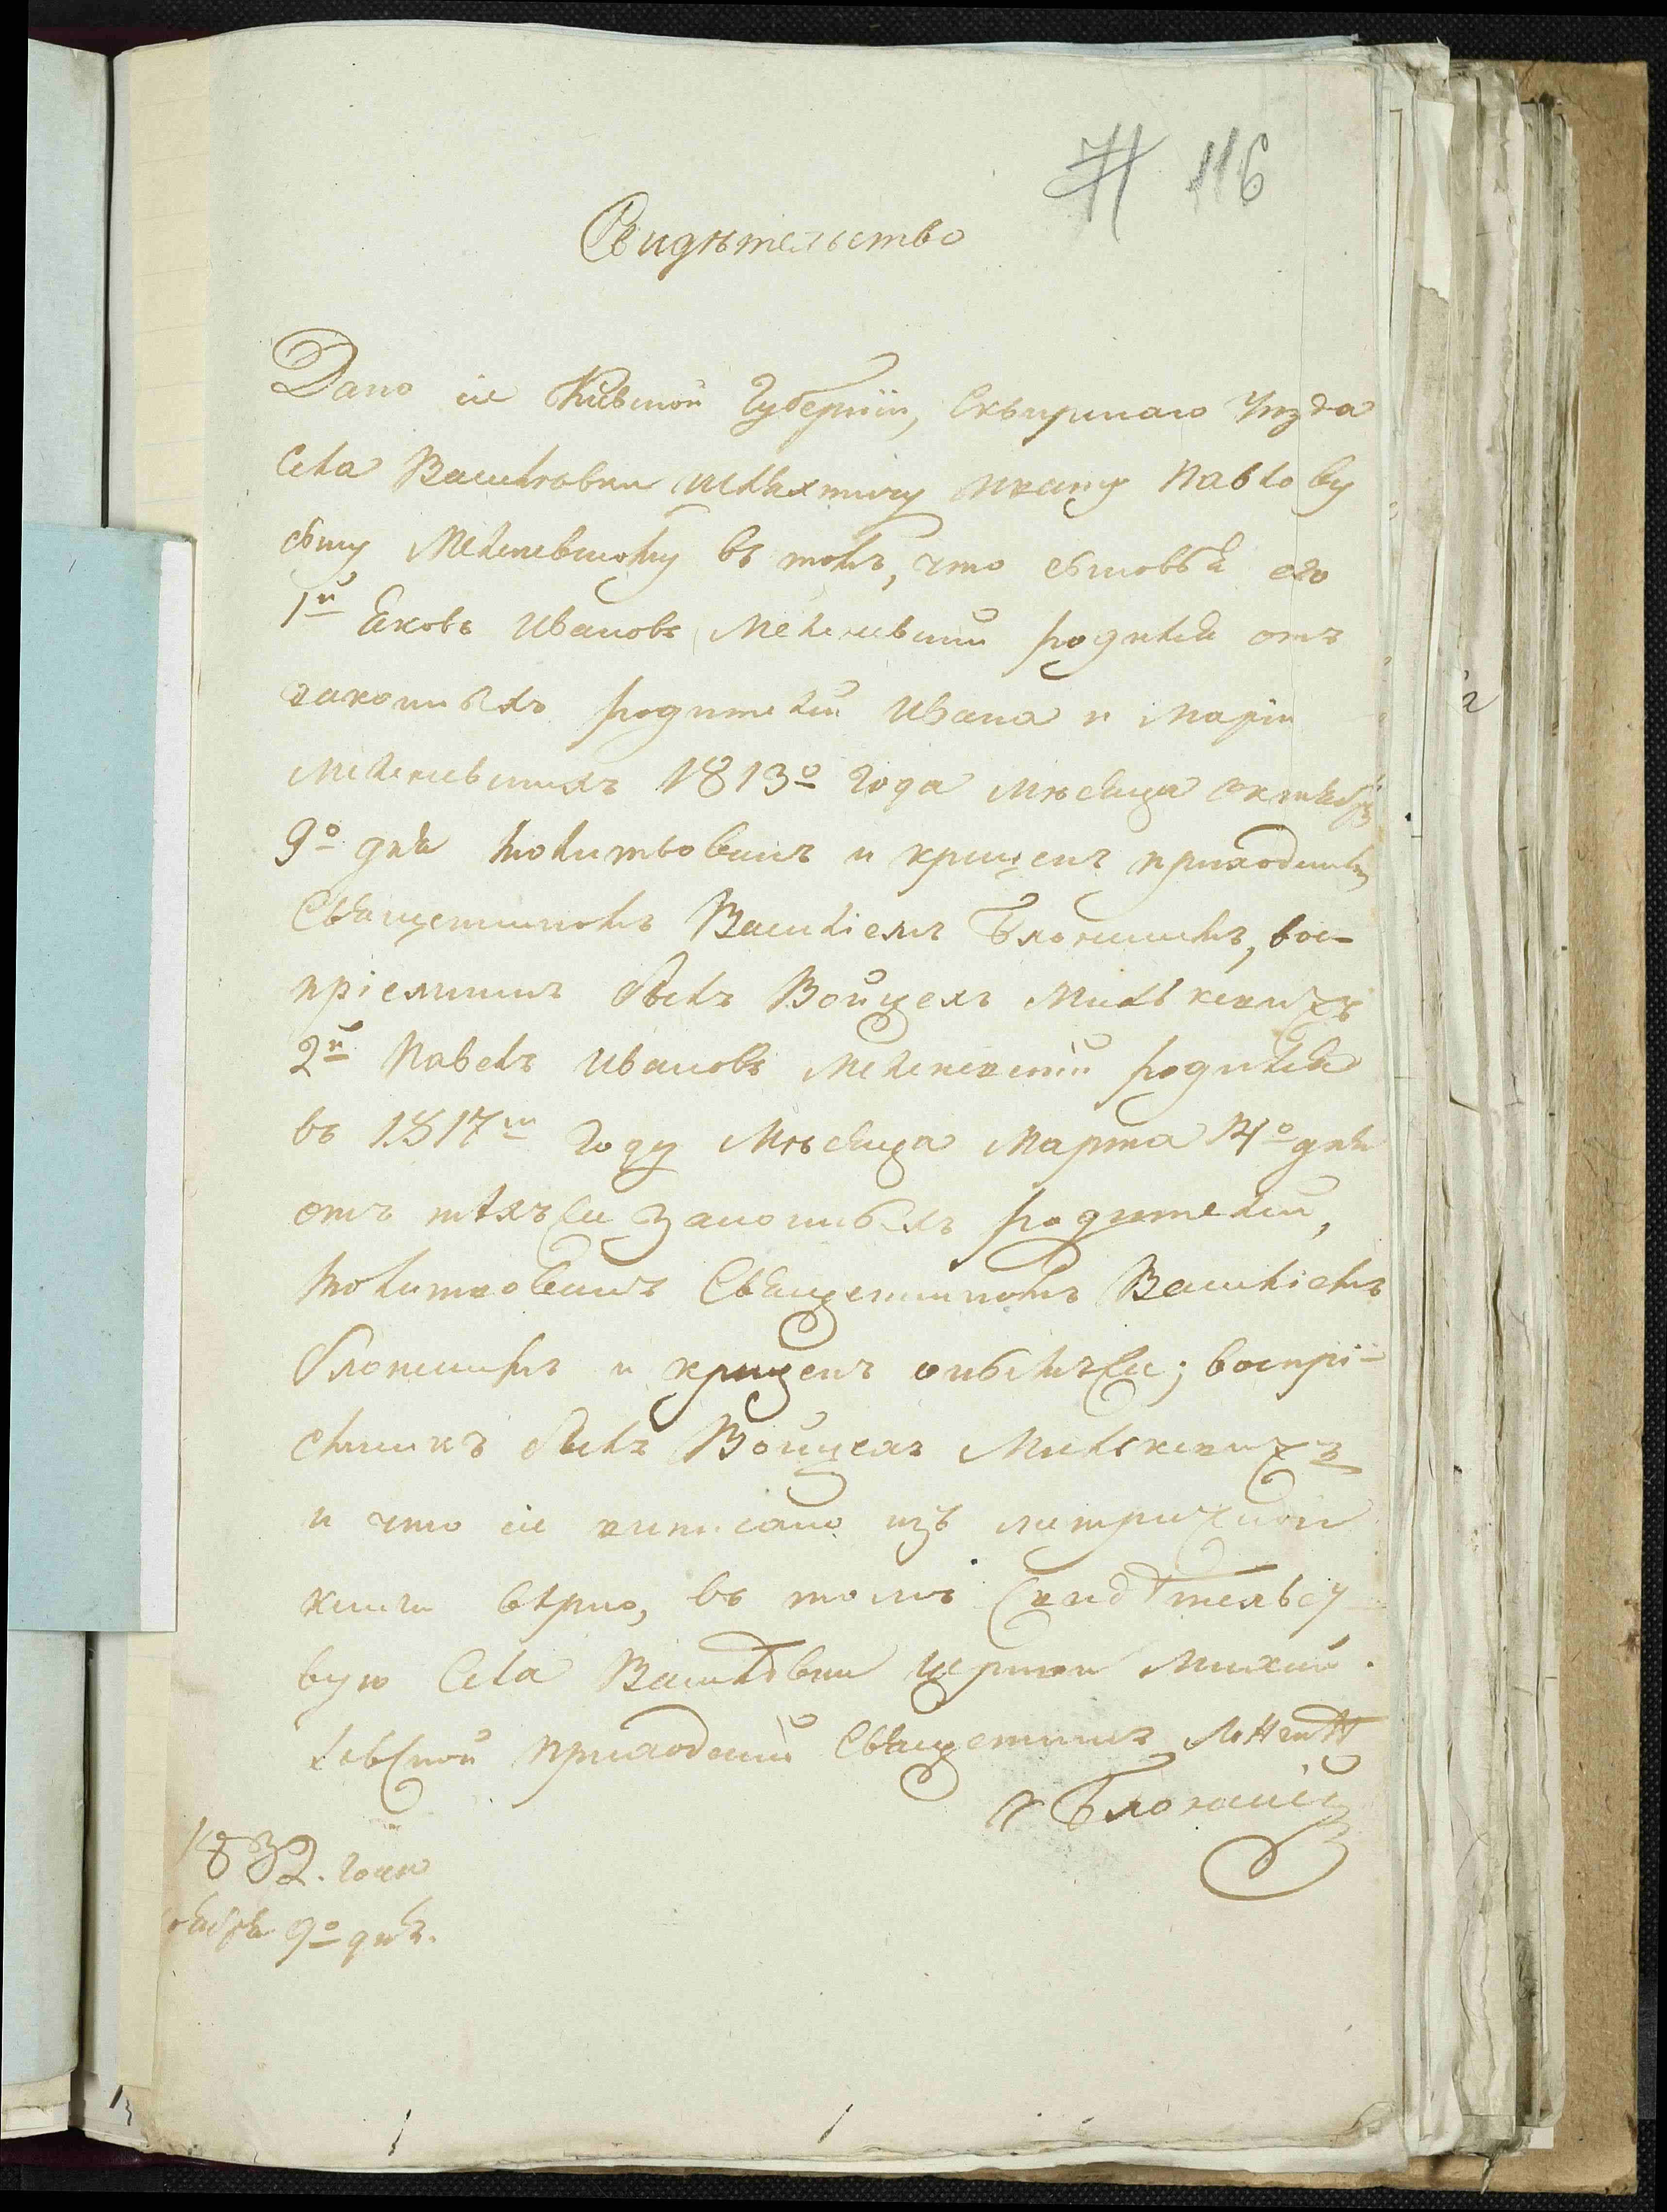 71 116
Свидѣтельство
Дано сіе Кіевской Губерніи, Сквирскаго уѣзда
Села Василювки шляхтичу Ивану Павлову
сыну Мележевскому въ томъ, что сыновья его
1й Яковъ Ивановъ Мележевскій родился отъ
законныхъ родителей Ивана и Маріи
Мележевскихъ 1813о года мѣсяца октября
9о дня молитвованъ и крещенъ приходскимъ
Священникомъ Василіемъ Блонскимъ, вос-
пріемникъ былъ Войцехъ Милькевичъ
2й Павелъ Ивановъ Мележевскій родился
въ 1817м году мѣсяца Марта 14о дня
отъ тѣхъ же законныхъ родителей,
молитвованъ Священникомъ Василіемъ
Блонскимъ и крещенъ онымъ же; воспрі-
емникъ былъ Войцехъ Милькевичъ
и что сіе выписано изъ метричной
книги вѣрно, въ томъ Свидѣтельст
вую Села Василювки церкви Михай-
ловской приходскій Священникъ
Блонскій
1832. года
9о дня.